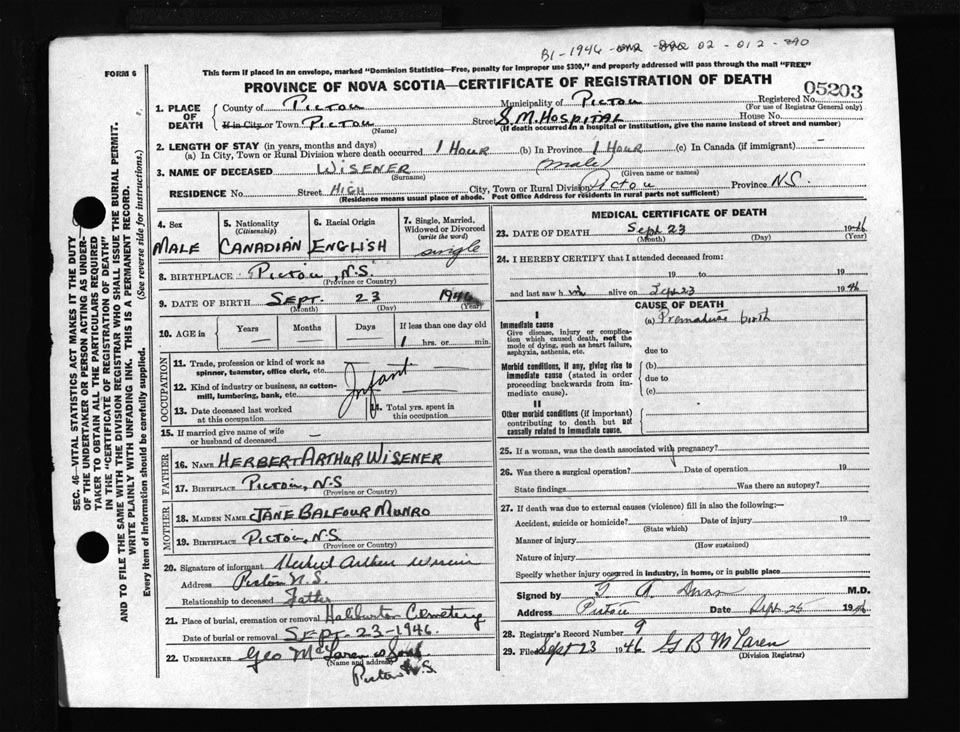 B1-1946
02-012-
FORM 6
This form if placed in an envelope, marked "Dominion Statistics—Free, penalty for improper use $300," and properly addressed will pass through the mail "FREE"
PROVINCE OF NOVA SCOTIA—CERTIFICATE OF REGISTRATION OF DEATH
05203
1. PLACE OF DEATH
County of Pictou Municipality of Pictou Registered No.
(For use of Registrar General only)
If in City or Town Pictou Street S.M. HOSPITAL House No.
(Name) (If death occurred in a hospital or institution, give the name instead of street and number)
2. LENGTH OF STAY (in years, months and days)
(a) In City, Town or Rural Division where death occurred 1 HOUR (b) In Province 1 HOUR (c) In Canada (if immigrant) —
3. NAME OF DECEASED WISENER (male)
(Surname) (Given name or names)
RESIDENCE No. Street HIGH City, Town or Rural Division Pictou Province N.S.
(Residence means usual place of abode. Post Office Address for residents in rural parts not sufficient)
4. Sex
MALE
5. Nationality
(Citizenship)
CANADIAN
6. Racial Origin
ENGLISH
7. Single, Married, Widowed or Divorced
(write the word)
single
8. BIRTHPLACE Pictou, N.S.
(Province or Country)
9. DATE OF BIRTH SEPT. 23 1946
(Month) (Day) (Year)
10. AGE in
Years Months Days If less than one day old
— — — 1 hrs. or min.
OCCUPATION
11. Trade, profession or kind of work as spinner, teamster, office clerk, etc.
12. Kind of industry or business, as cotton-mill, lumbering, bank, etc.
Infant
13. Date deceased last worked at this occupation
14. Total yrs. spent in this occupation
15. If married give name of wife or husband of deceased —
FATHER
16. NAME HERBERT ARTHUR WISENER
17. BIRTHPLACE Pictou, N.S
(Province or Country)
MOTHER
18. MAIDEN NAME JANE BALFOUR MUNRO
19. BIRTHPLACE Pictou, N.S.
(Province or Country)
20. Signature of informant Herbert Arthur Wisener
Address Pictou N.S.
Relationship to deceased Father
21. Place of burial, cremation or removal Haliburton Cemetery
Date of burial or removal SEPT-23-1946.
22. UNDERTAKER Geo McLaren & Sons
(Name and address)
Pictou N.S.
MEDICAL CERTIFICATE OF DEATH
23. DATE OF DEATH Sept 23 1946
(Month) (Day) (Year)
24. I HEREBY CERTIFY that I attended deceased from:
19 to 19
and last saw h im alive on Sept 23 1946
CAUSE OF DEATH
I
Immediate cause
Give disease, injury or complication which caused death, not the mode of dying, such as heart failure, asphyxia, asthenia, etc.
(a) Premature birth
due to
Morbid conditions, if any, giving rise to immediate cause (stated in order proceeding backwards from immediate cause).
(b)
due to
(c)
II
Other morbid conditions (if important) contributing to death but not causally related to immediate cause.
25. If a woman, was the death associated with pregnancy?
26. Was there a surgical operation? Date of operation 19
State findings Was there an autopsy?
27. If death was due to external causes (violence) fill in also the following:—
Accident, suicide or homicide? Date of injury 19
(State which)
Manner of injury
(How sustained)
Nature of injury
Specify whether injury occurred in industry, in home, or in public place
Signed by M.D.
Address Pictou Date Sept 25 1946
28. Registrar's Record Number 9
29. Filed Sept 23 1946 G B McLaren
(Division Registrar)
SEC. 46—VITAL STATISTICS ACT MAKES IT THE DUTY
OF THE UNDERTAKER OR PERSON ACTING AS UNDER-
TAKER TO OBTAIN ALL THE PARTICULARS REQUIRED
IN THE "CERTIFICATE OF REGISTRATION OF DEATH"
AND TO FILE THE SAME WITH THE DIVISION REGISTRAR WHO SHALL ISSUE THE BURIAL PERMIT.
WRITE PLAINLY WITH UNFADING INK. THIS IS A PERMANENT RECORD.
Every item of information should be carefully supplied. (See reverse side for instructions.)